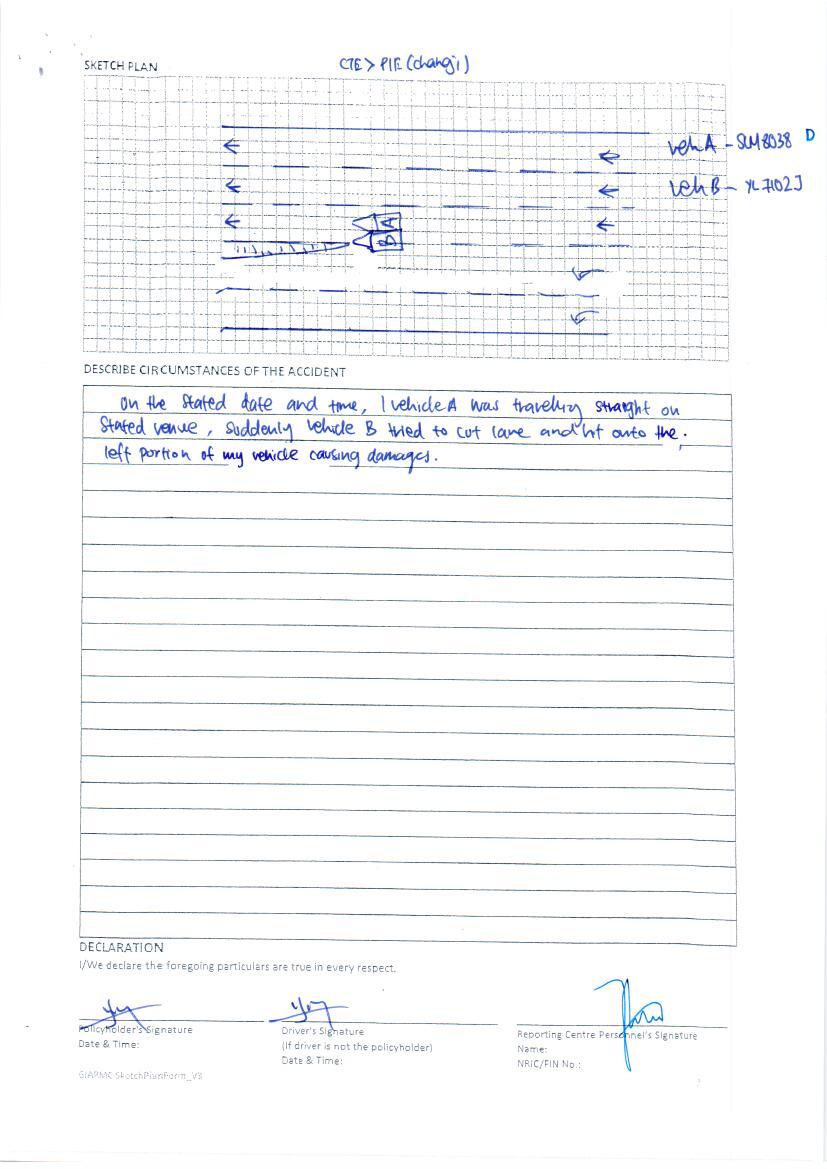 SKETCH PLAN
CTE > PIE (changi)
veh A - SLM8038 D
veh B - YL7102J
A
B
DESCRIBE CIRCUMSTANCES OF THE ACCIDENT
On the stated date and time, I vehicle A was travelling straight on
stated venue, suddenly vehicle B tried to cut lane and hit onto the.
left portion of my vehicle causing damages.
DECLARATION
I/We declare the foregoing particulars are true in every respect.
Policyholder's Signature
Date & Time:
Driver's Signature
(If driver is not the policyholder)
Date & Time:
Reporting Centre Personnel's Signature
Name:
NRIC/FIN No.:
GIARMC SketchPlanForm_V3